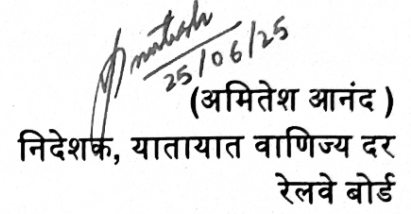 Amitesh
25/06/25
(अमितेश आनंद )
निदेशक, यातायात वाणिज्य दर
रेलवे बोर्ड